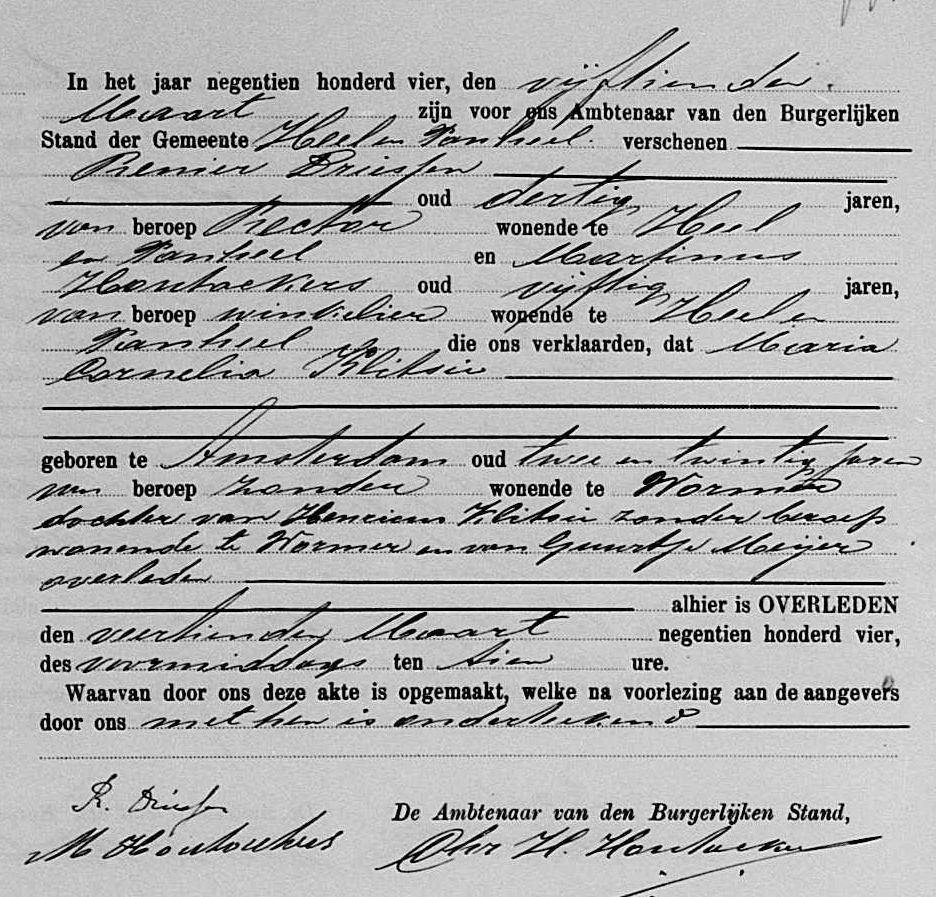 In het jaar negentien honderd vier, den vijftienden
Maart zijn voor ons Ambtenaar van den Burgerlijken
Stand der Gemeente Heel en Panheel verschenen
Renier Driessen
oud dertig jaren,
van beroep Rector wonende te Heel
en Panheel en Martinus
Houtackers oud vijftig jaren,
van beroep winkelier wonende te Heel en
Panheel die ons verklaarden, dat Maria
Cornelia Klitsie
geboren te Amsterdam oud twee en twintig jaren
van beroep zonder wonende te Wormer
dochter van Henricus Klitsie zonder beroep
wonende te Wormer en van Guurtje Meijer
overleden
alhier is OVERLEDEN
den veertienden Maart negentien honderd vier,
des voormiddags ten tien ure.
Waarvan door ons deze akte is opgemaakt, welke na voorlezing aan de aangevers
door ons met hen is onderteekend
R. Driessen
De Ambtenaar van den Burgerlijken Stand,
M Houtackers
Chr H. Houtackers